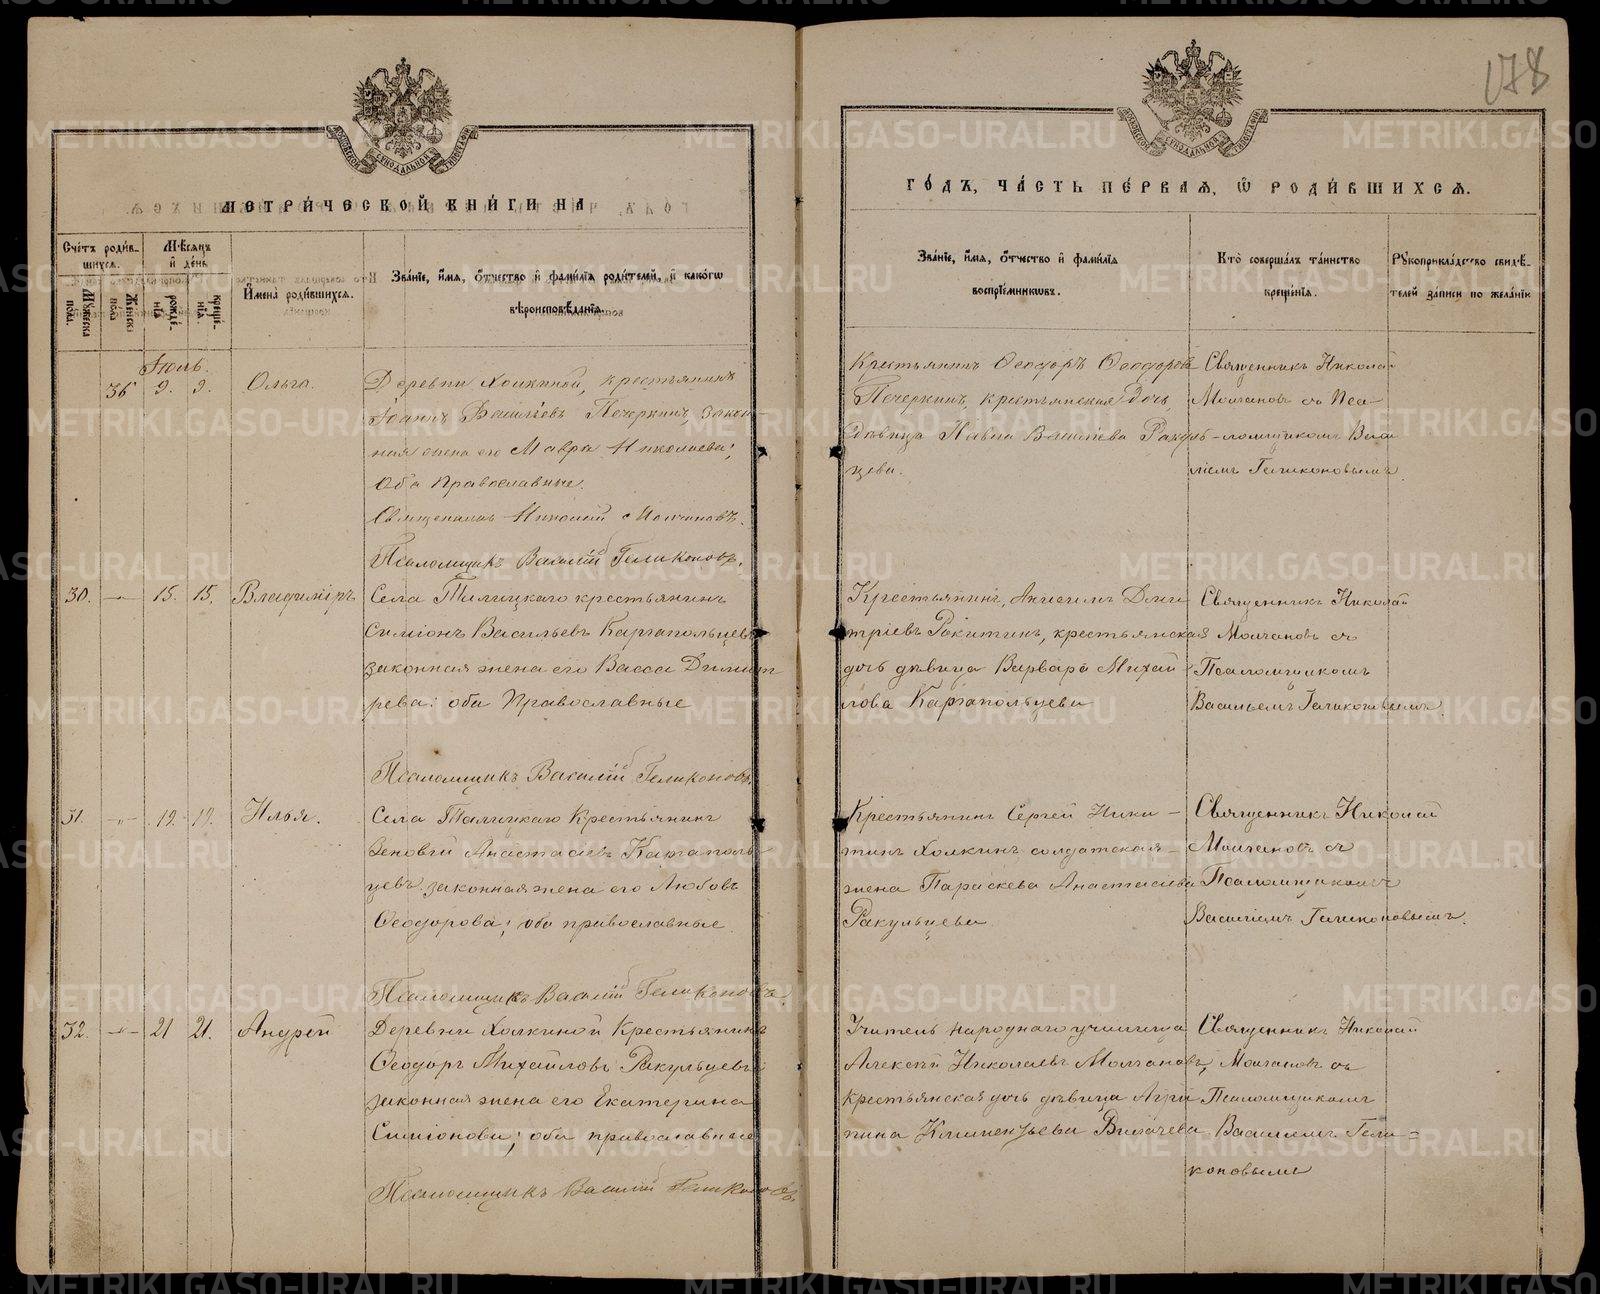 178
МЕТРИ́ЧЕСКОЙ КНИ́ГИ НА
ГО́ДЪ, ЧА́СТЬ ПЕ́РВАЯ, Ѿ РОДИ́ВШИХСЯ.
Сче́тъ роди́в-
шихся.
Му́жеска
пола.
Же́нска
по́ла
Мѣ́сяцъ
и҆ де́нь
рожде́-
нїѧ
креще́-
нїѧ.
И҆мена̀ роди́вшихся.
Зва́нїе, и҆́мя, ѻ҆́тчество и҆ фами́лїя роди́телей, и҆ како́гѡ
вѣроисповѣ́данїя.
Зва́нїе, и҆́мя, ѻ҆́тчество и҆ фами́лїя
воспрїе́мникѡвъ.
Кто̀ соверша́лъ та́инство
креще́нїя.
Рꙋкоприкла́дство свидѣ́-
телей за́писи по жела́нїю
Іюль.
36 9. 9. Ольга.
Деревни Холкиной, крестьянинъ
Іоаннъ Васильевъ Печеркинъ, закон-
ная жена его Мавра Николаева;
Оба Православные.
Священникъ Николай Молчановъ.
Псаломщикъ Василій Геликоновъ.
Крестьянинъ Ѳеодоръ Ѳеодоровъ
Печеркинъ, крестьянская дочь,
Дѣвица Васильева Ракуль-
цева.
Священникъ Николай
Молчановъ съ Пса-
ломщикомъ Васи
ліемъ Геликоновымъ
30. -„- 15. 15. Владиміръ
Села Талицкаго крестьянинъ
Симіонъ Васильевъ Каргапольцевъ
законная жена его Васса Димит
рева: оба Православные
Псаломщикъ Василій Геликоновъ.
Крестьянинъ, Анисимъ Дми
тріевъ Ракитинъ, крестьянская
дочь дѣвица Варвара Михай
лова Каргапольцева
Священникъ Николай
Молчановъ съ
Псаломщикомъ
Васильемъ Геликоновымъ
31. -„- 19. 19. Илья.
Села Талицкаго Крестьянинъ
Зеновій Анастасіевъ Каргаполь
цевъ законная жена его Любовь
Ѳеодорова; оба православные
Псаломщикъ Василій Геликоновъ.
Крестьянинъ Сергей Ники-
тинъ Холкинъ солдатская
жена Параскева Анастасіева
Ракульцева
Священникъ Николай
Молчановъ съ
Псаломщикомъ
Василіемъ Геликоновымъ.
32. -„- 21 21. Андрей
Деревни Холкиной Крестьянинъ
Ѳеодоръ Михайловъ Ракульцевъ
законная жена его Екатерина
Симіонова; оба православные
Псаломщикъ Василій Геликоновъ
Учитель народнаго училища
Алексѣй Николаевъ Молчановъ,
крестьянская дочь дѣвица Агри
пина Климентьева Вихачева
Священникъ Николай
Молчановъ съ
Псаломщикомъ
Василіемъ Гели=
коновымъ
METRIKI.GASO-URAL.RU